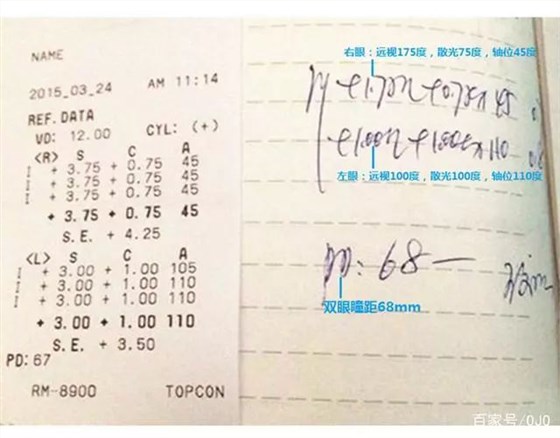 NAME
2015_03_24 AM 11:14
REF. DATA
VD: 12.00 CYL: (+)
<R> S C A
+ 3.75 + 0.75 45
+ 3.75 + 0.75 45
+ 3.75 + 0.75 45
+ 3.75 + 0.75 45
S.E. + 4.25
<L> S C A
+ 3.00 + 1.00 105
+ 3.00 + 1.00 110
+ 3.00 + 1.00 110
+ 3.00 + 1.00 110
S.E. + 3.50
PD: 67
RM-8900 TOPCON
右眼：远视175度，散光75度，轴位45度
45
左眼：远视100度，散光100度，轴位110度
110
68
双眼瞳距68mm
百家号/OJO